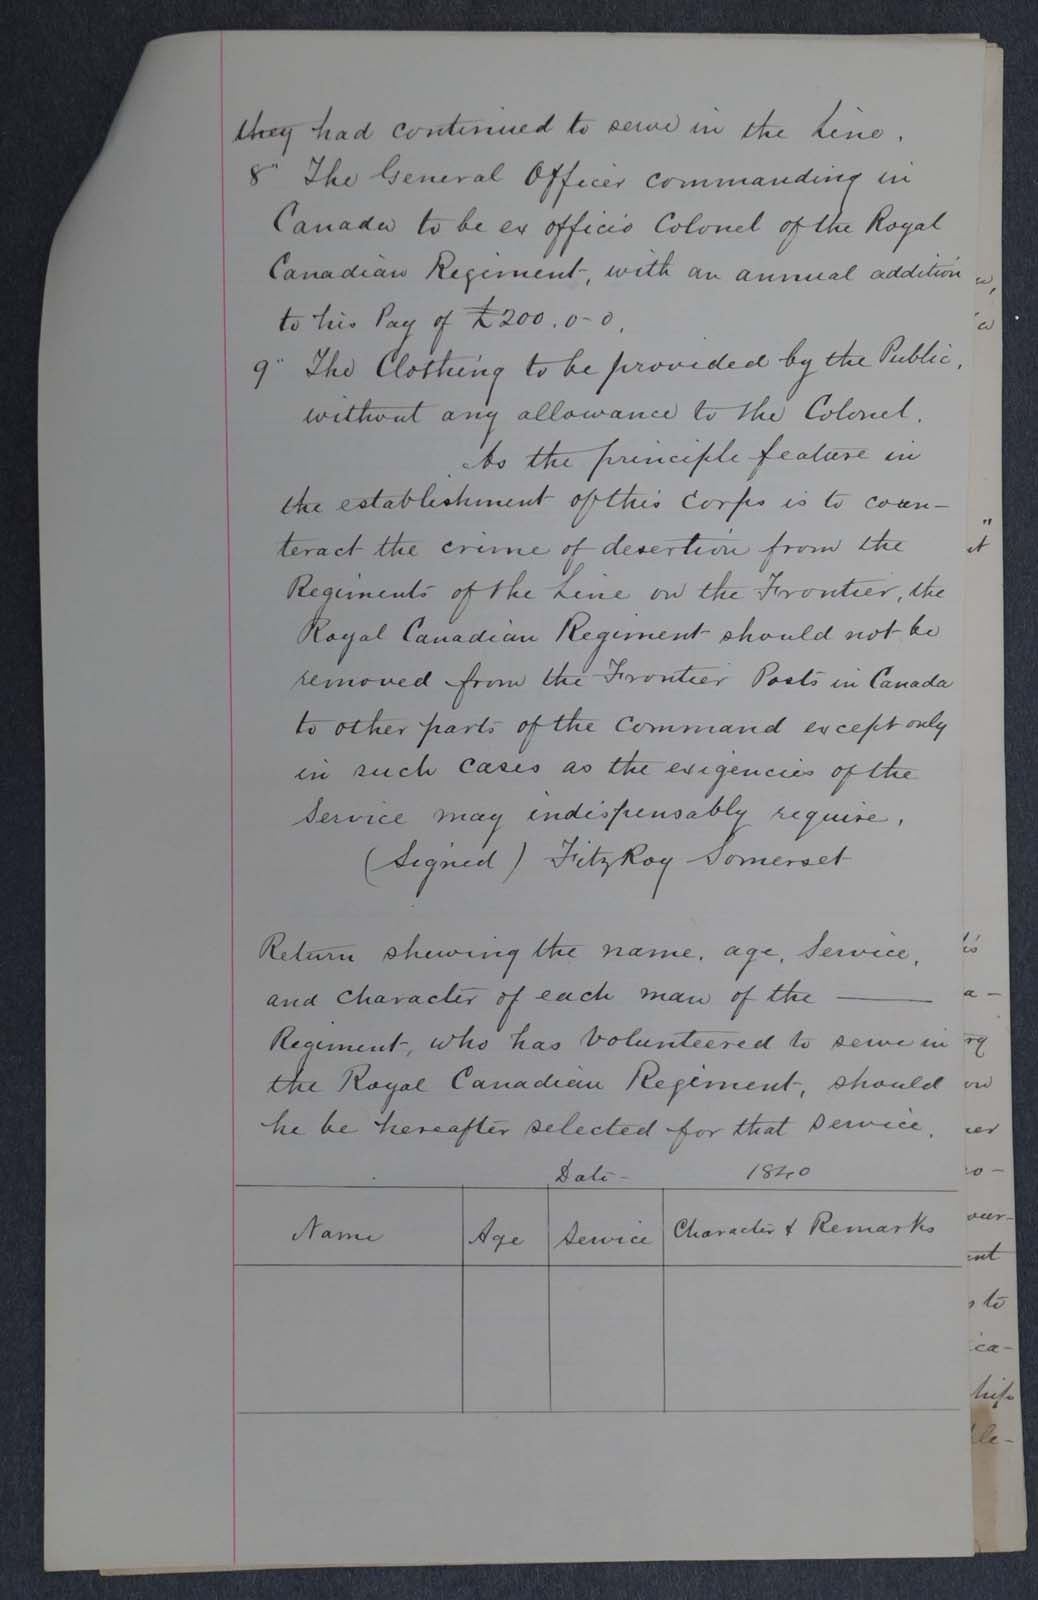 they had continued to serve in the Line.
8" The General Officer commanding in
Canada to be ex officio Colonel of the Royal
Canadian Regiment, with an annual addition
to his Pay of £200.0-0.
9" The Clothing to be provided by the Public,
without any allowance to the Colonel.
As the principle feature in
the establishment of this Corps is to coun-
teract the crime of desertion from the
Regiments of the Line on the Frontier, the
Royal Canadian Regiment should not be
removed from the Frontier Posts in Canada
to other parts of the Command except only
in such cases as the exigencies of the
Service may indispensably require.
(Signed) FitzRoy Somerset
Return shewing the name, age, Service,
and Character of each man of the ———
Regiment, who has Volunteered to serve in
the Royal Canadian Regiment, should
he be hereafter selected for that Service.
Date - 1840
Name Age Service Character & Remarks